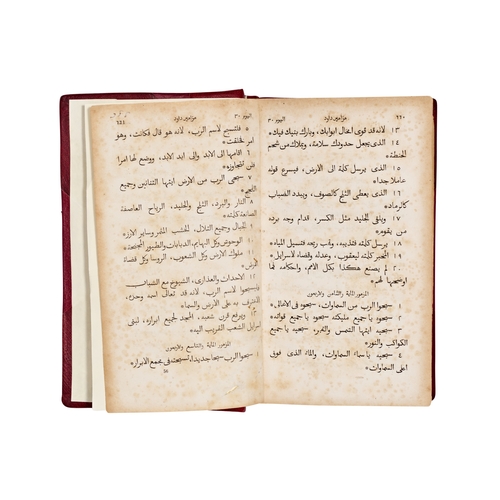 ٢٢٠ مزامير داود اليوم ٣٠
١٣ لانه قد قوى اغلال ابوابك، وبارك بنيك فيك٭
١٤ الذى يجعل حدودك سلامة، ويملاك من شحم
الحنطة٭
١٥ الذى يرسل كلمته الى الارض، فيسرع قوله
عاجلا جدا٭
١٦ الذى يعطى الثلج كالصوف، ويبدد الضباب
كالرماد٭
١٧ ويلقى الجليد مثل الكسر، قدام وجه برده
من يقوم٭
١٨ يرسل كلمته فتذيبه، وتهب ريحه فتسيل المياه٭
١٩ المخبر كلمته ليعقوب، وعدله وقضاه لاسرايل٭
٢٠ لم يصنع هكذا بكل الامم، واحكامه لهم ما
اوضحها لهم٭
المزمور الماية والثامن والاربعون
١ سبحوا الرب من السماوات، سبحوه فى الاعالى٭
٢ سبحوه يا جميع مليكته، سبحوه يا جميع قواته٭
٣ سبحيه ايتها الشمس والقمر، سبحيه يا جميع
الكواكب والنور٭
٤ سبحيه يا سماء السماوات، والماء الذى فوق
اعلى السماوات٭
اليوم ٣٠ مزامير داود ٢٢١
٥ فلتسبح لاسم الرب، لانه هو قال فكانت، وهو
امر فخلقت٭
٦ اقامها الى الابد والى ابد الابد، ووضع لها امرا
فلن تتجاوزه٭
٧ سبحى الرب من الارض ايتها التنانين وجميع
اللجج٭
النار والبرد، الثلج والجليد، الرياح العاصفة
الصانعة كلمته٭
الجبال وجميع التلال، الخشب المثمر وساير الارز٭
الوحوش وكل البهايم، الدبابات والطيور المجنحة٭
ملوك الارض وكل الشعوب، الروسا وكل قضاة
الارض٭
الاحداث والعذارى، الشيوخ مع الشباب
فليسبحوا لاسم الرب، لانه قد تعالى اسمه وحده٭
على الارض والسما٭
ويرفع قرن شعبه، المجد لجميع ابراره، لبنى
اسرايل الشعب القريب اليه٭
المزمور الماية والتاسع والاربعون
١ سبحوا الرب سبحا جديدا، تسبحته فى مجمع الابرار٭